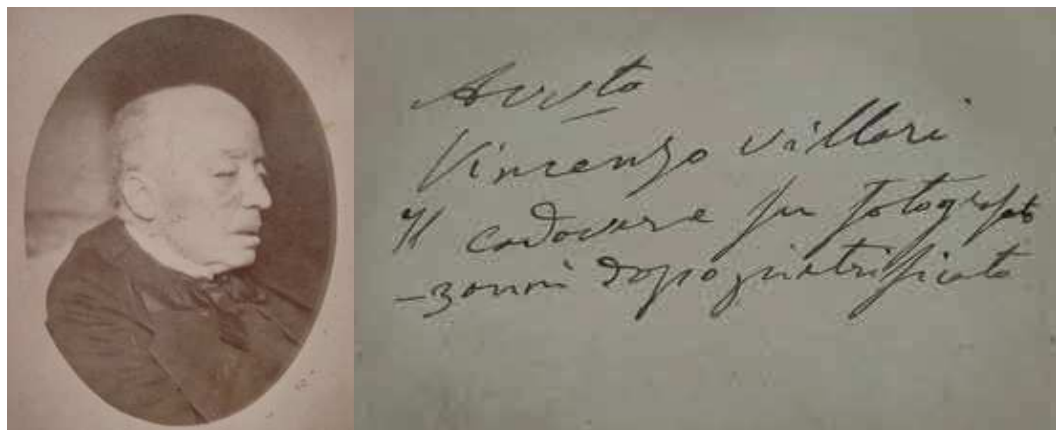 Avvto
Vincenzo Villari
Il cadavere fu fotografato
– 3 anni dopo pietrificato